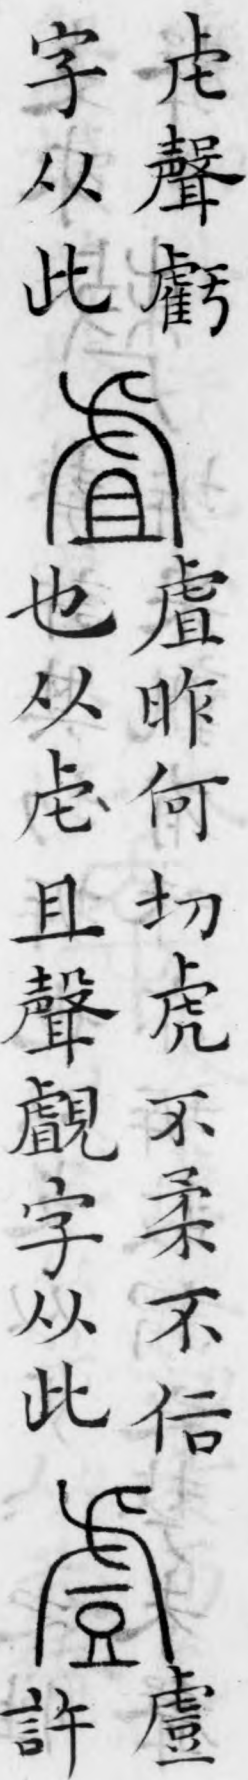 虍聲虧
字从此
䖒昨何切虎不柔不信
也从虍且聲覰字从此
䖒許